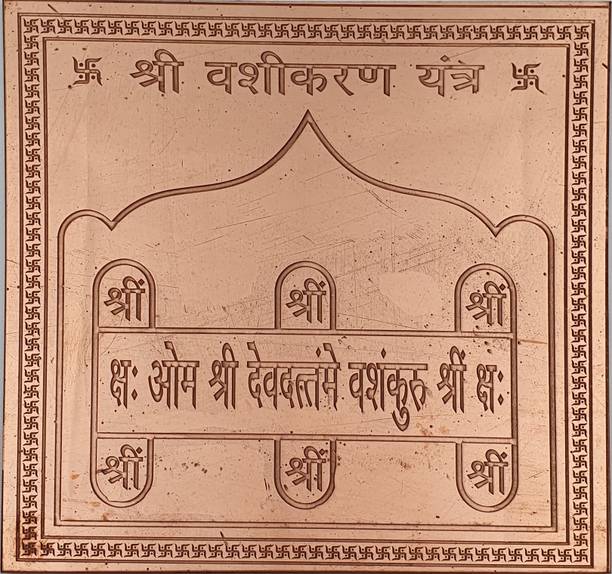 卐 श्री वशीकरण यंत्र 卐
श्रीं श्रीं श्रीं
क्षः ओम श्री देवदत्तंमे वशंकुरु श्रीं क्षः
श्रीं श्रीं श्रीं